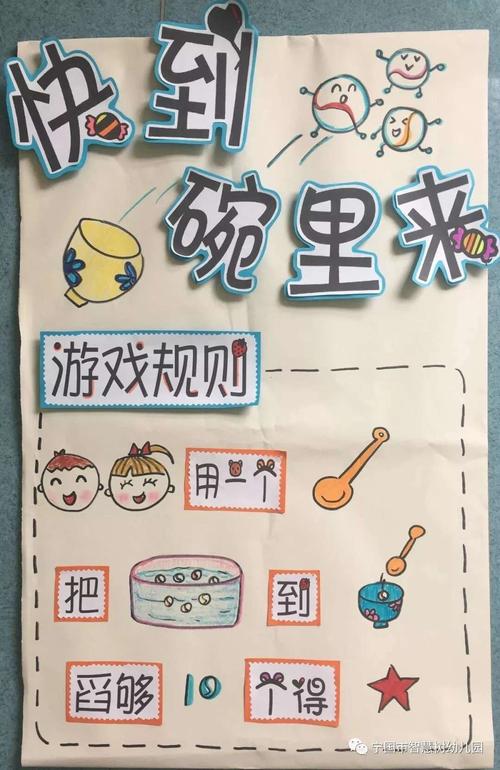 快到
碗里来
游戏规则
用一个
把 到
舀够 10 个得
宁国市智慧树幼儿园